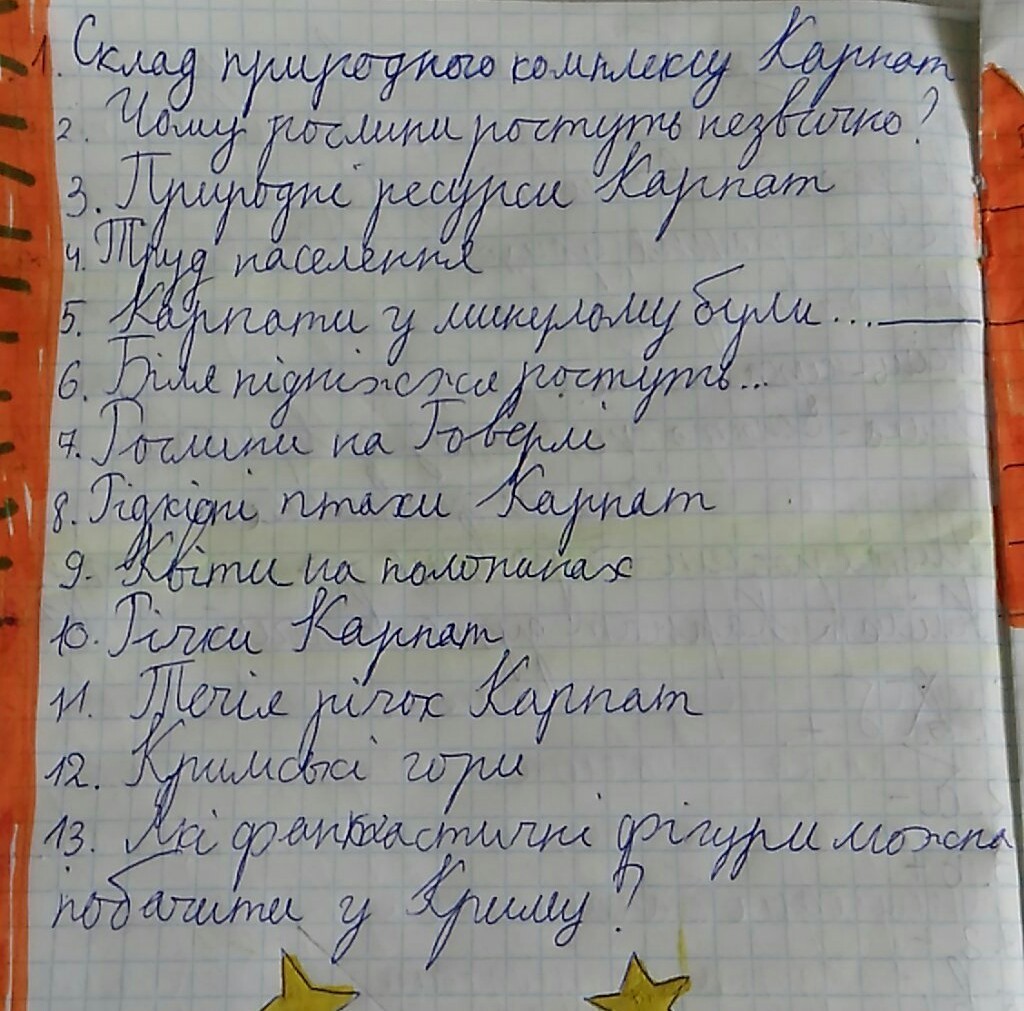 1. Склад природного комплексу Карпат
2. Чому рослини ростуть незвично?
3. Природні ресурси Карпат
4. Труд населення
5. Карпати у минулому були...____
6. Біля підніжжя ростуть...
7. Рослини на Говерлі
8. Рідкісні птахи Карпат
9. Квіти на полонинах
10. Річки Карпат
11. Течія річок Карпат
12. Кримські гори
13. Які фантастичні фігури можна
побачити у Криму?